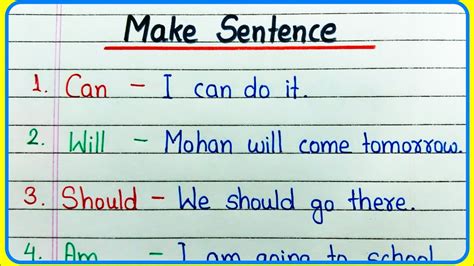 Make Sentence
1. Can - I can do it.
2. Will - Mohan will come tomorrow.
3. Should - We should go there.
4. Am - I am going to school